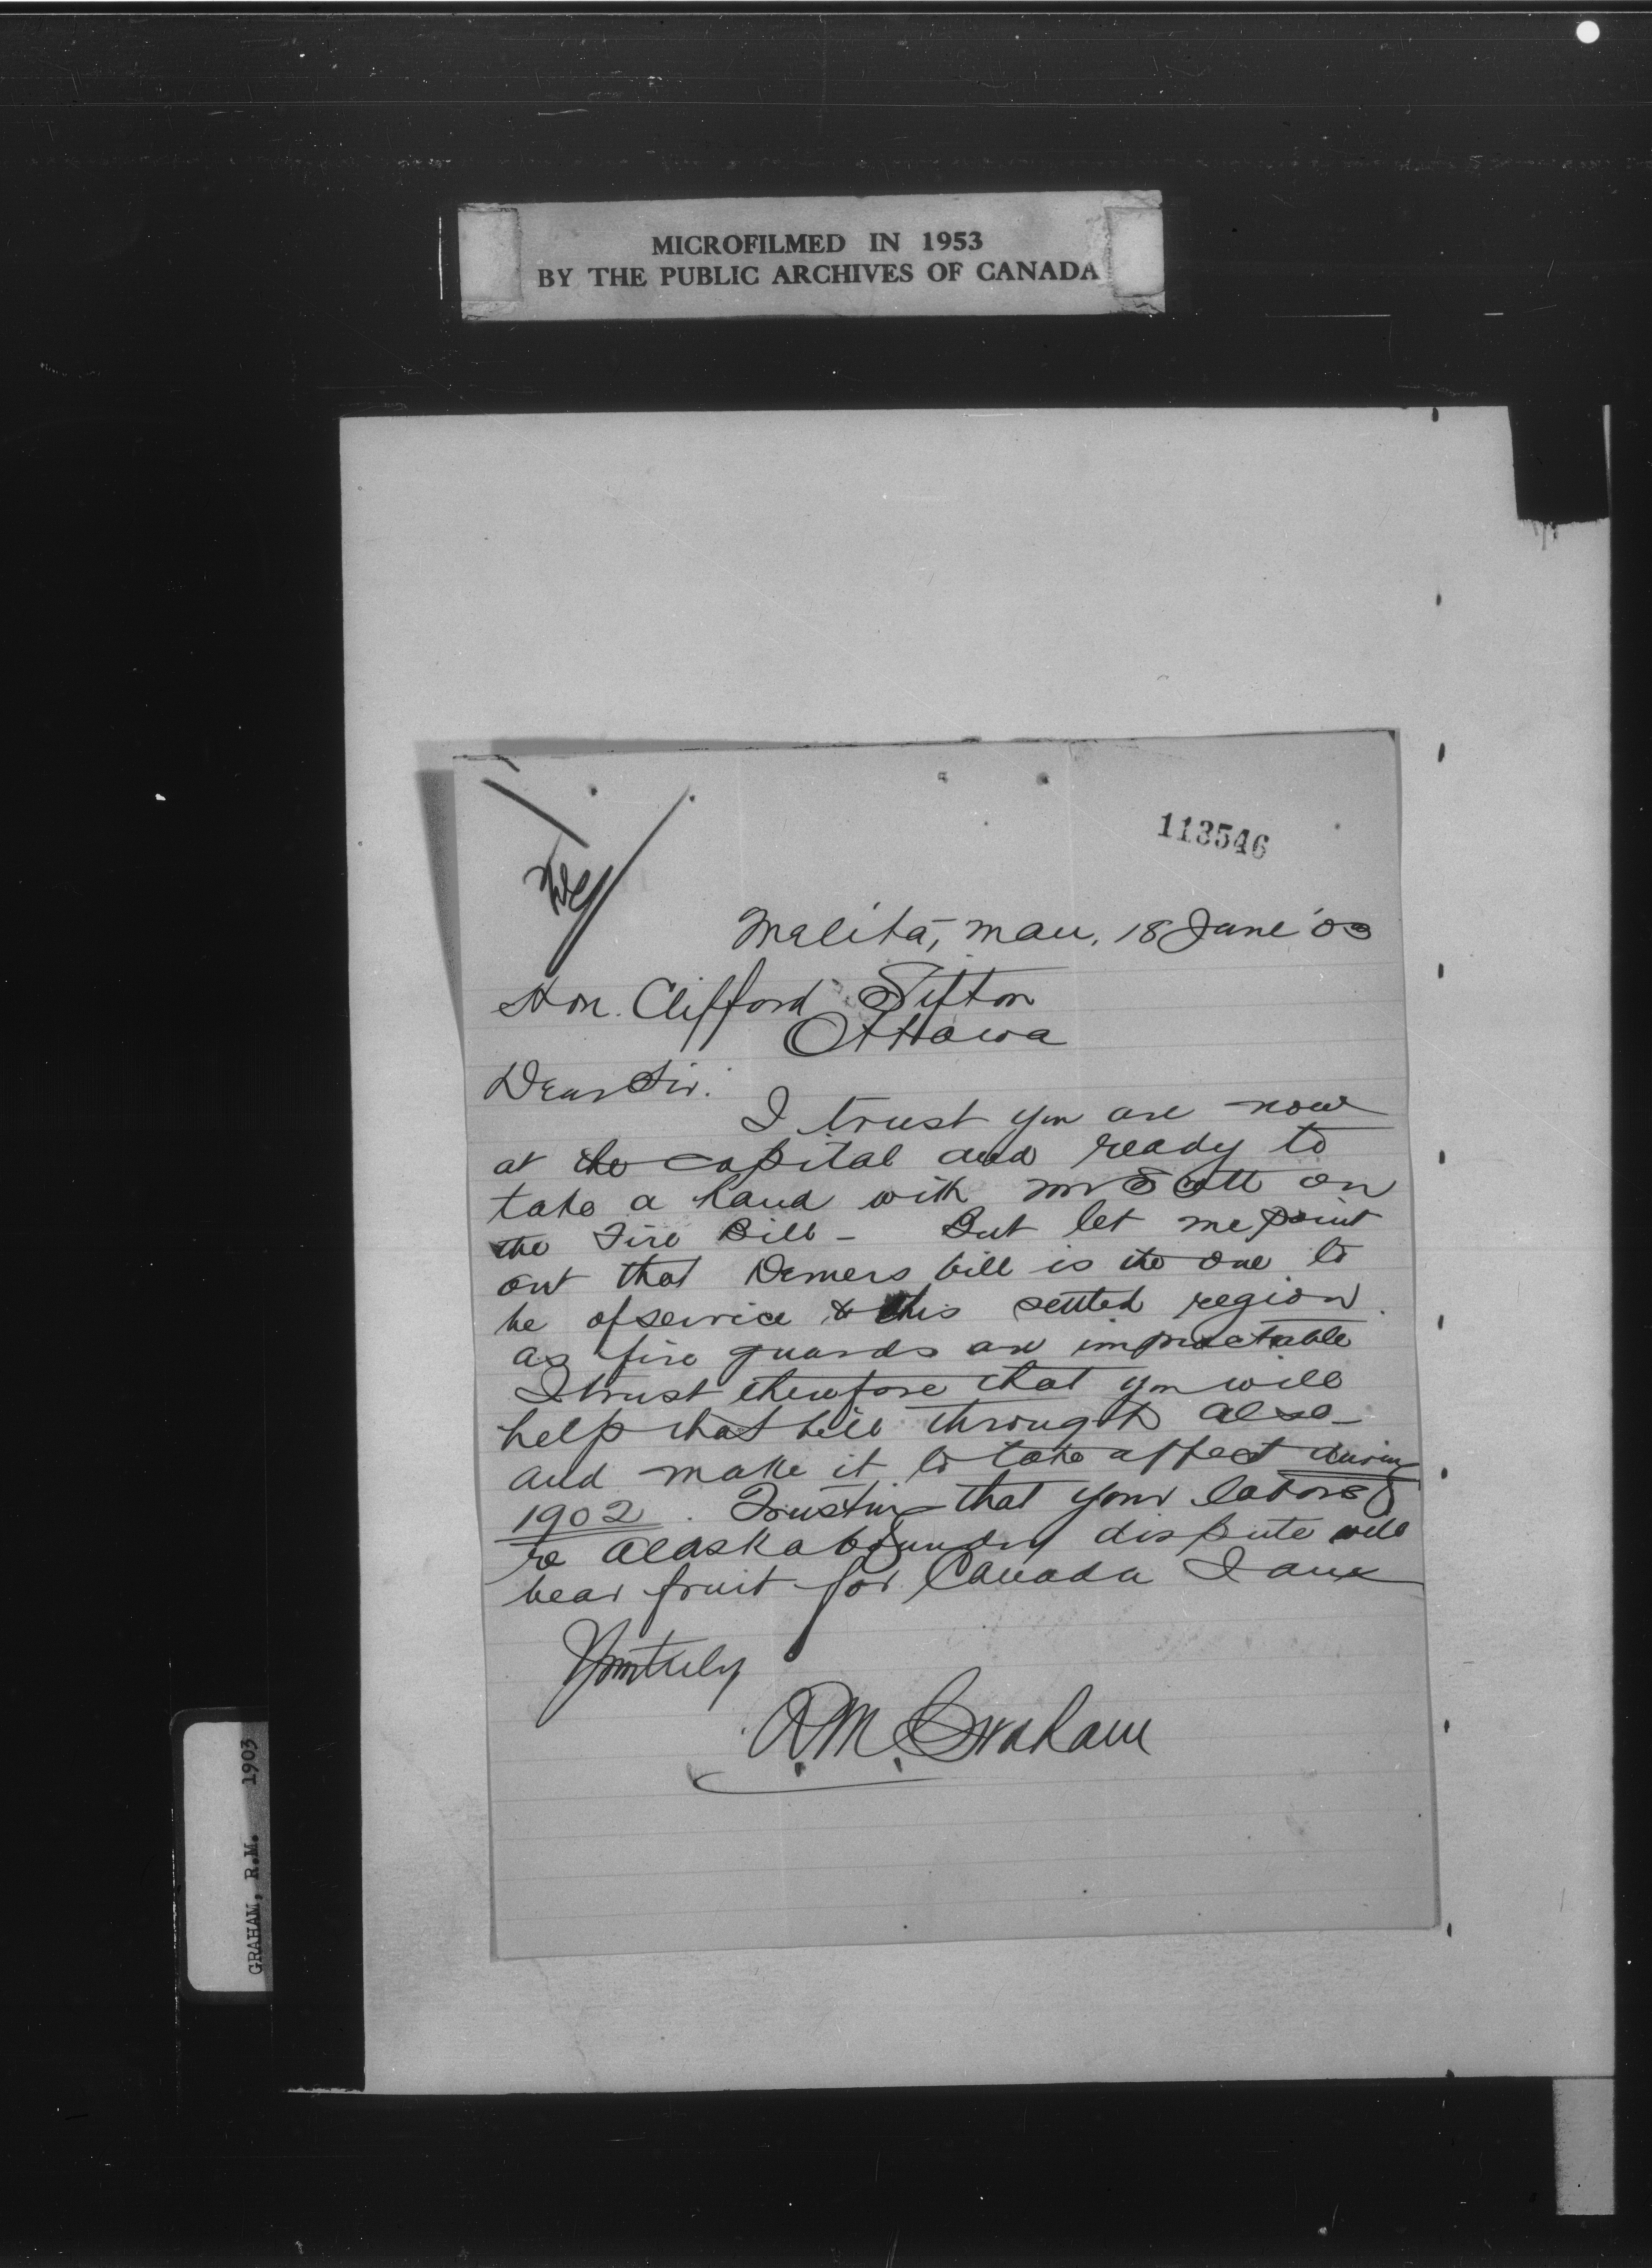 MICROFILMED IN 1953
BY THE PUBLIC ARCHIVES OF CANADA
113546
Melita, Man, 18 June '03
Hon. Clifford Sifton
Ottawa
Dear Sir.
I trust you are now
at the capital and ready to
take a hand with Mr Scott on
the Fire Bill - But let me point
out that Demers bill is the one to
be of service to this settled region.
as fire guards are impractable
I trust therefore that you will
help that bill through also -
and make it to take affect during
1902. Trusting that your labors
re Alaska boundry dispute will
bear fruit for Canada I am
Yours truly
R.M. Graham
GRAHAM, R.M. 1903